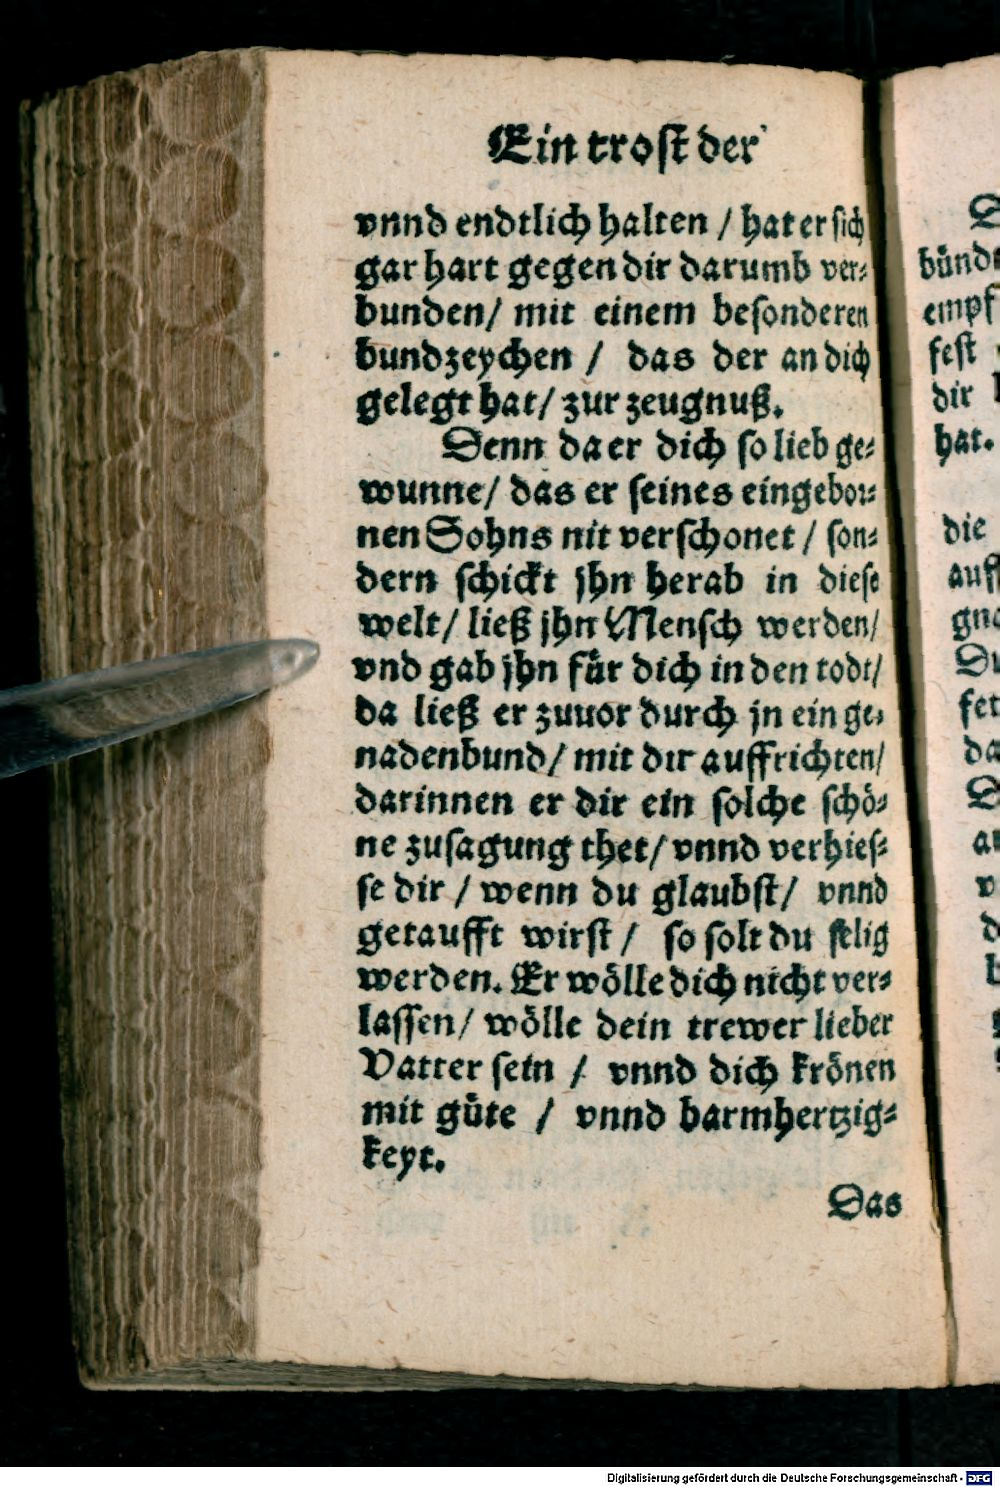 Ein trost der
vnnd endtlich halten / hat er sich
gar hart gegen dir darumb ver⸗
bunden/ mit einem besonderen
bundzeychen / das der an dich
gelegt hat/ zur zeugnuß.
Denn da er dich so lieb ge⸗
wunne/ das er seines eingebor⸗
nen Sohns nit verschonet / son⸗
dern schickt jhn herab in diese
welt/ ließ jhn Mensch werden/
vnd gab jhn für dich in den todt/
da ließ er zuuor durch jn ein ge⸗
nadenbund/ mit dir auffrichten/
darinnen er dir ein solche schö⸗
ne zusagung thet/ vnnd verhies⸗
se dir / wenn du glaubst/ vnnd
getaufft wirst / so solt du selig
werden. Er wölle dich nicht ver⸗
lassen/ wölle dein trewer lieber
Vatter sein / vnnd dich krönen
mit güte / vnnd barmhertzig⸗
keyt.
Das
bünd
empf
fest
dir
hat.
die
auff
fet
da
Digitalisierung gefördert durch die Deutsche Forschungsgemeinschaft - DFG